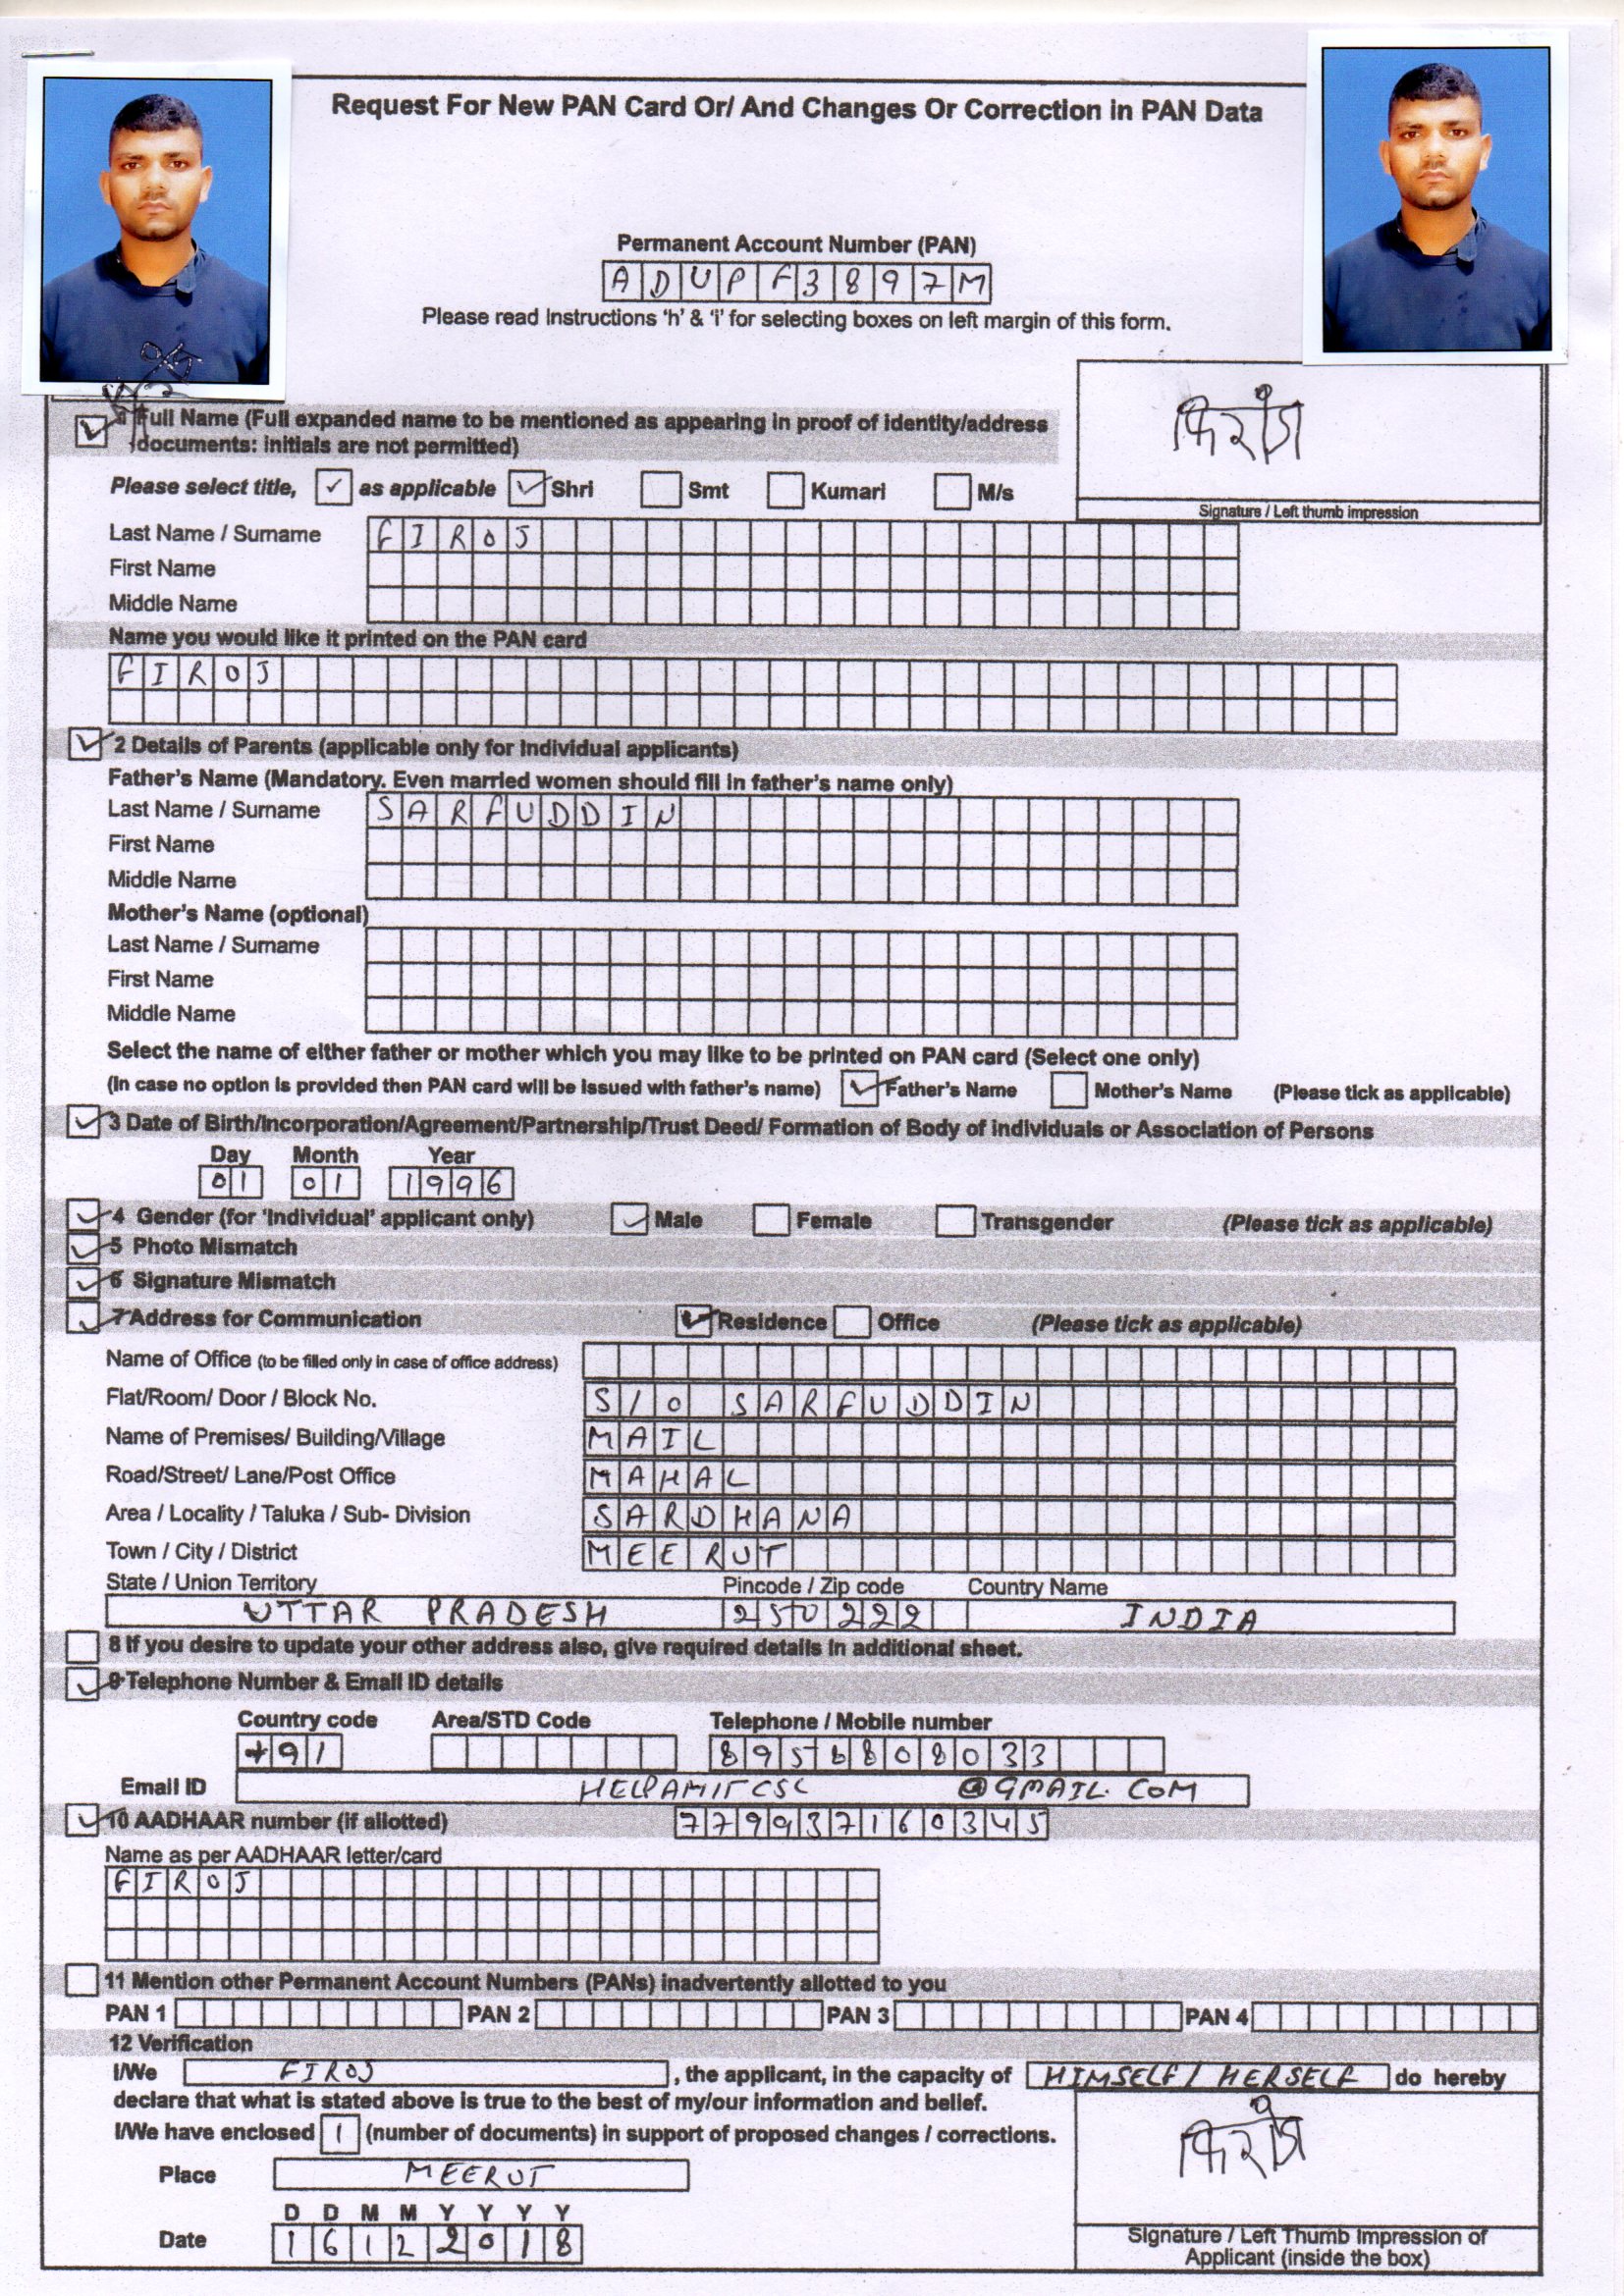 Request For New PAN Card Or/ And Changes Or Correction in PAN Data
Permanent Account Number (PAN)
ADUPF3897M
Please read Instructions 'h' & 'i' for selecting boxes on left margin of this form.
फिरोज
Signature / Left thumb impression
Full Name (Full expanded name to be mentioned as appearing in proof of identity/address
documents: initials are not permitted)
Please select title, ✓ as applicable ✓ Shri Smt Kumari M/s
Last Name / Surname FIROJ
First Name
Middle Name
Name you would like it printed on the PAN card
FIROJ
2 Details of Parents (applicable only for Individual applicants)
Father's Name (Mandatory. Even married women should fill in father's name only)
Last Name / Surname SARFUDDIN
First Name
Middle Name
Mother's Name (optional)
Last Name / Surname
First Name
Middle Name
Select the name of either father or mother which you may like to be printed on PAN card (Select one only)
(In case no option is provided then PAN card will be issued with father's name) ✓ Father's Name Mother's Name (Please tick as applicable)
3 Date of Birth/Incorporation/Agreement/Partnership/Trust Deed/ Formation of Body of individuals or Association of Persons
Day Month Year
01 01 1996
4 Gender (for 'Individual' applicant only) ✓ Male Female Transgender (Please tick as applicable)
5 Photo Mismatch
6 Signature Mismatch
7 Address for Communication ✓ Residence Office (Please tick as applicable)
Name of Office (to be filled only in case of office address)
Flat/Room/ Door / Block No. S/O SARFUDDIN
Name of Premises/ Building/Village MAIL
Road/Street/ Lane/Post Office MAHAL
Area / Locality / Taluka / Sub- Division SARDHANA
Town / City / District MEERUT
State / Union Territory Pincode / Zip code Country Name
UTTAR PRADESH 250222 INDIA
8 If you desire to update your other address also, give required details in additional sheet.
9 Telephone Number & Email ID details
Country code Area/STD Code Telephone / Mobile number
+91 8958808033
Email ID HELPAMITCSC @GMAIL.COM
10 AADHAAR number (if allotted) 779937160345
Name as per AADHAAR letter/card
FIROJ
11 Mention other Permanent Account Numbers (PANs) inadvertently allotted to you
PAN 1 PAN 2 PAN 3 PAN 4
12 Verification
I/We FIROJ , the applicant, in the capacity of HIMSELF/HERSELF do hereby
declare that what is stated above is true to the best of my/our information and belief.
I/We have enclosed 1 (number of documents) in support of proposed changes / corrections.
Place MEERUT
D D M M Y Y Y Y
Date 16122018
फिरोज
Signature / Left Thumb Impression of
Applicant (inside the box)